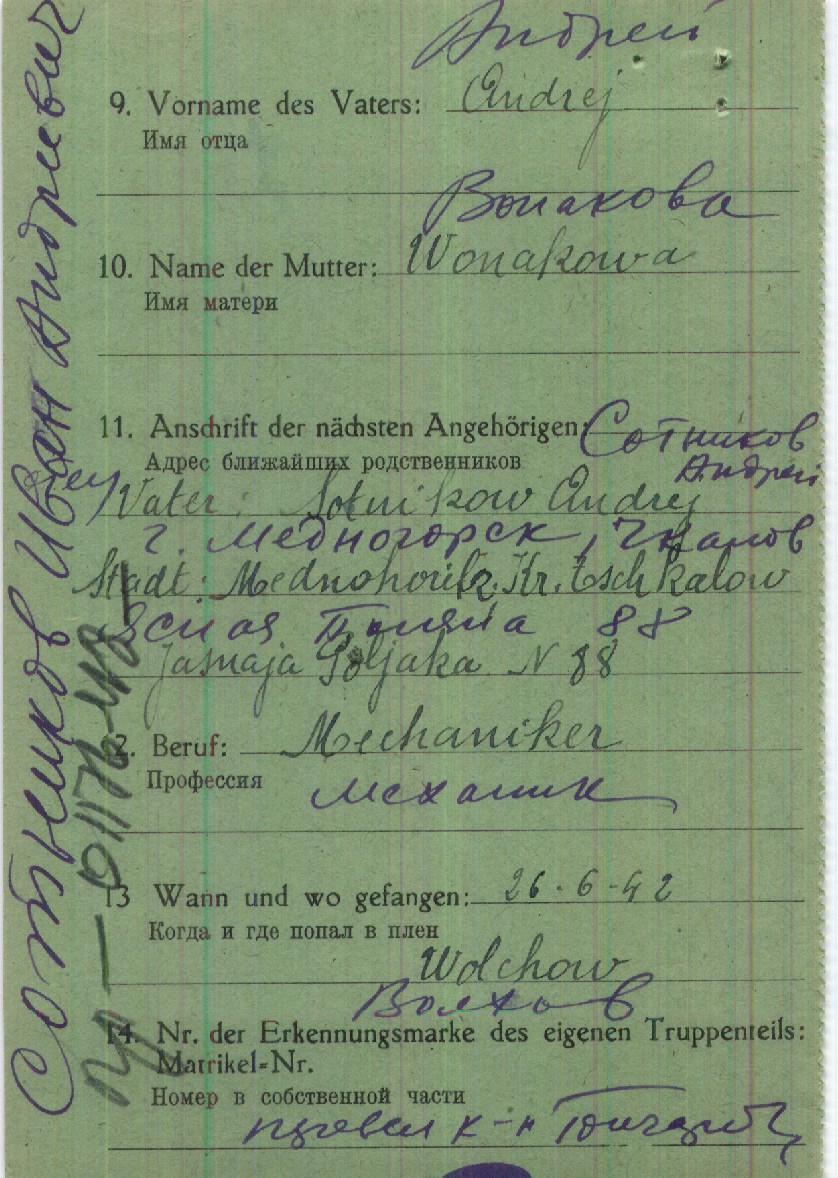 Андрей
9. Vorname des Vaters: Andrej
Имя отца
Вонакова
10. Name der Mutter: Wonakowa
Имя матери
11. Anschrift der nächsten Angehörigen: Сотников
Адрес ближайших родственников Андрей
отец Vater: Sotnikow Andrej
г. Медногорск, Чкалов
Stadt: Kr. Tschkalow
Ясная Поляна 88
Jasnaja Poljaka N 88
12. Beruf: Mechaniker
Профессия
механик
13 Wann und wo gefangen: 26-6-42
Когда и где попал в плен
Wolchow
Волхов
14. Nr. der Erkennungsmarke des eigenen Truppenteils:
Matrikel-Nr.
Номер в собственной части
перевел к-н
Сотников Иван Андреевич